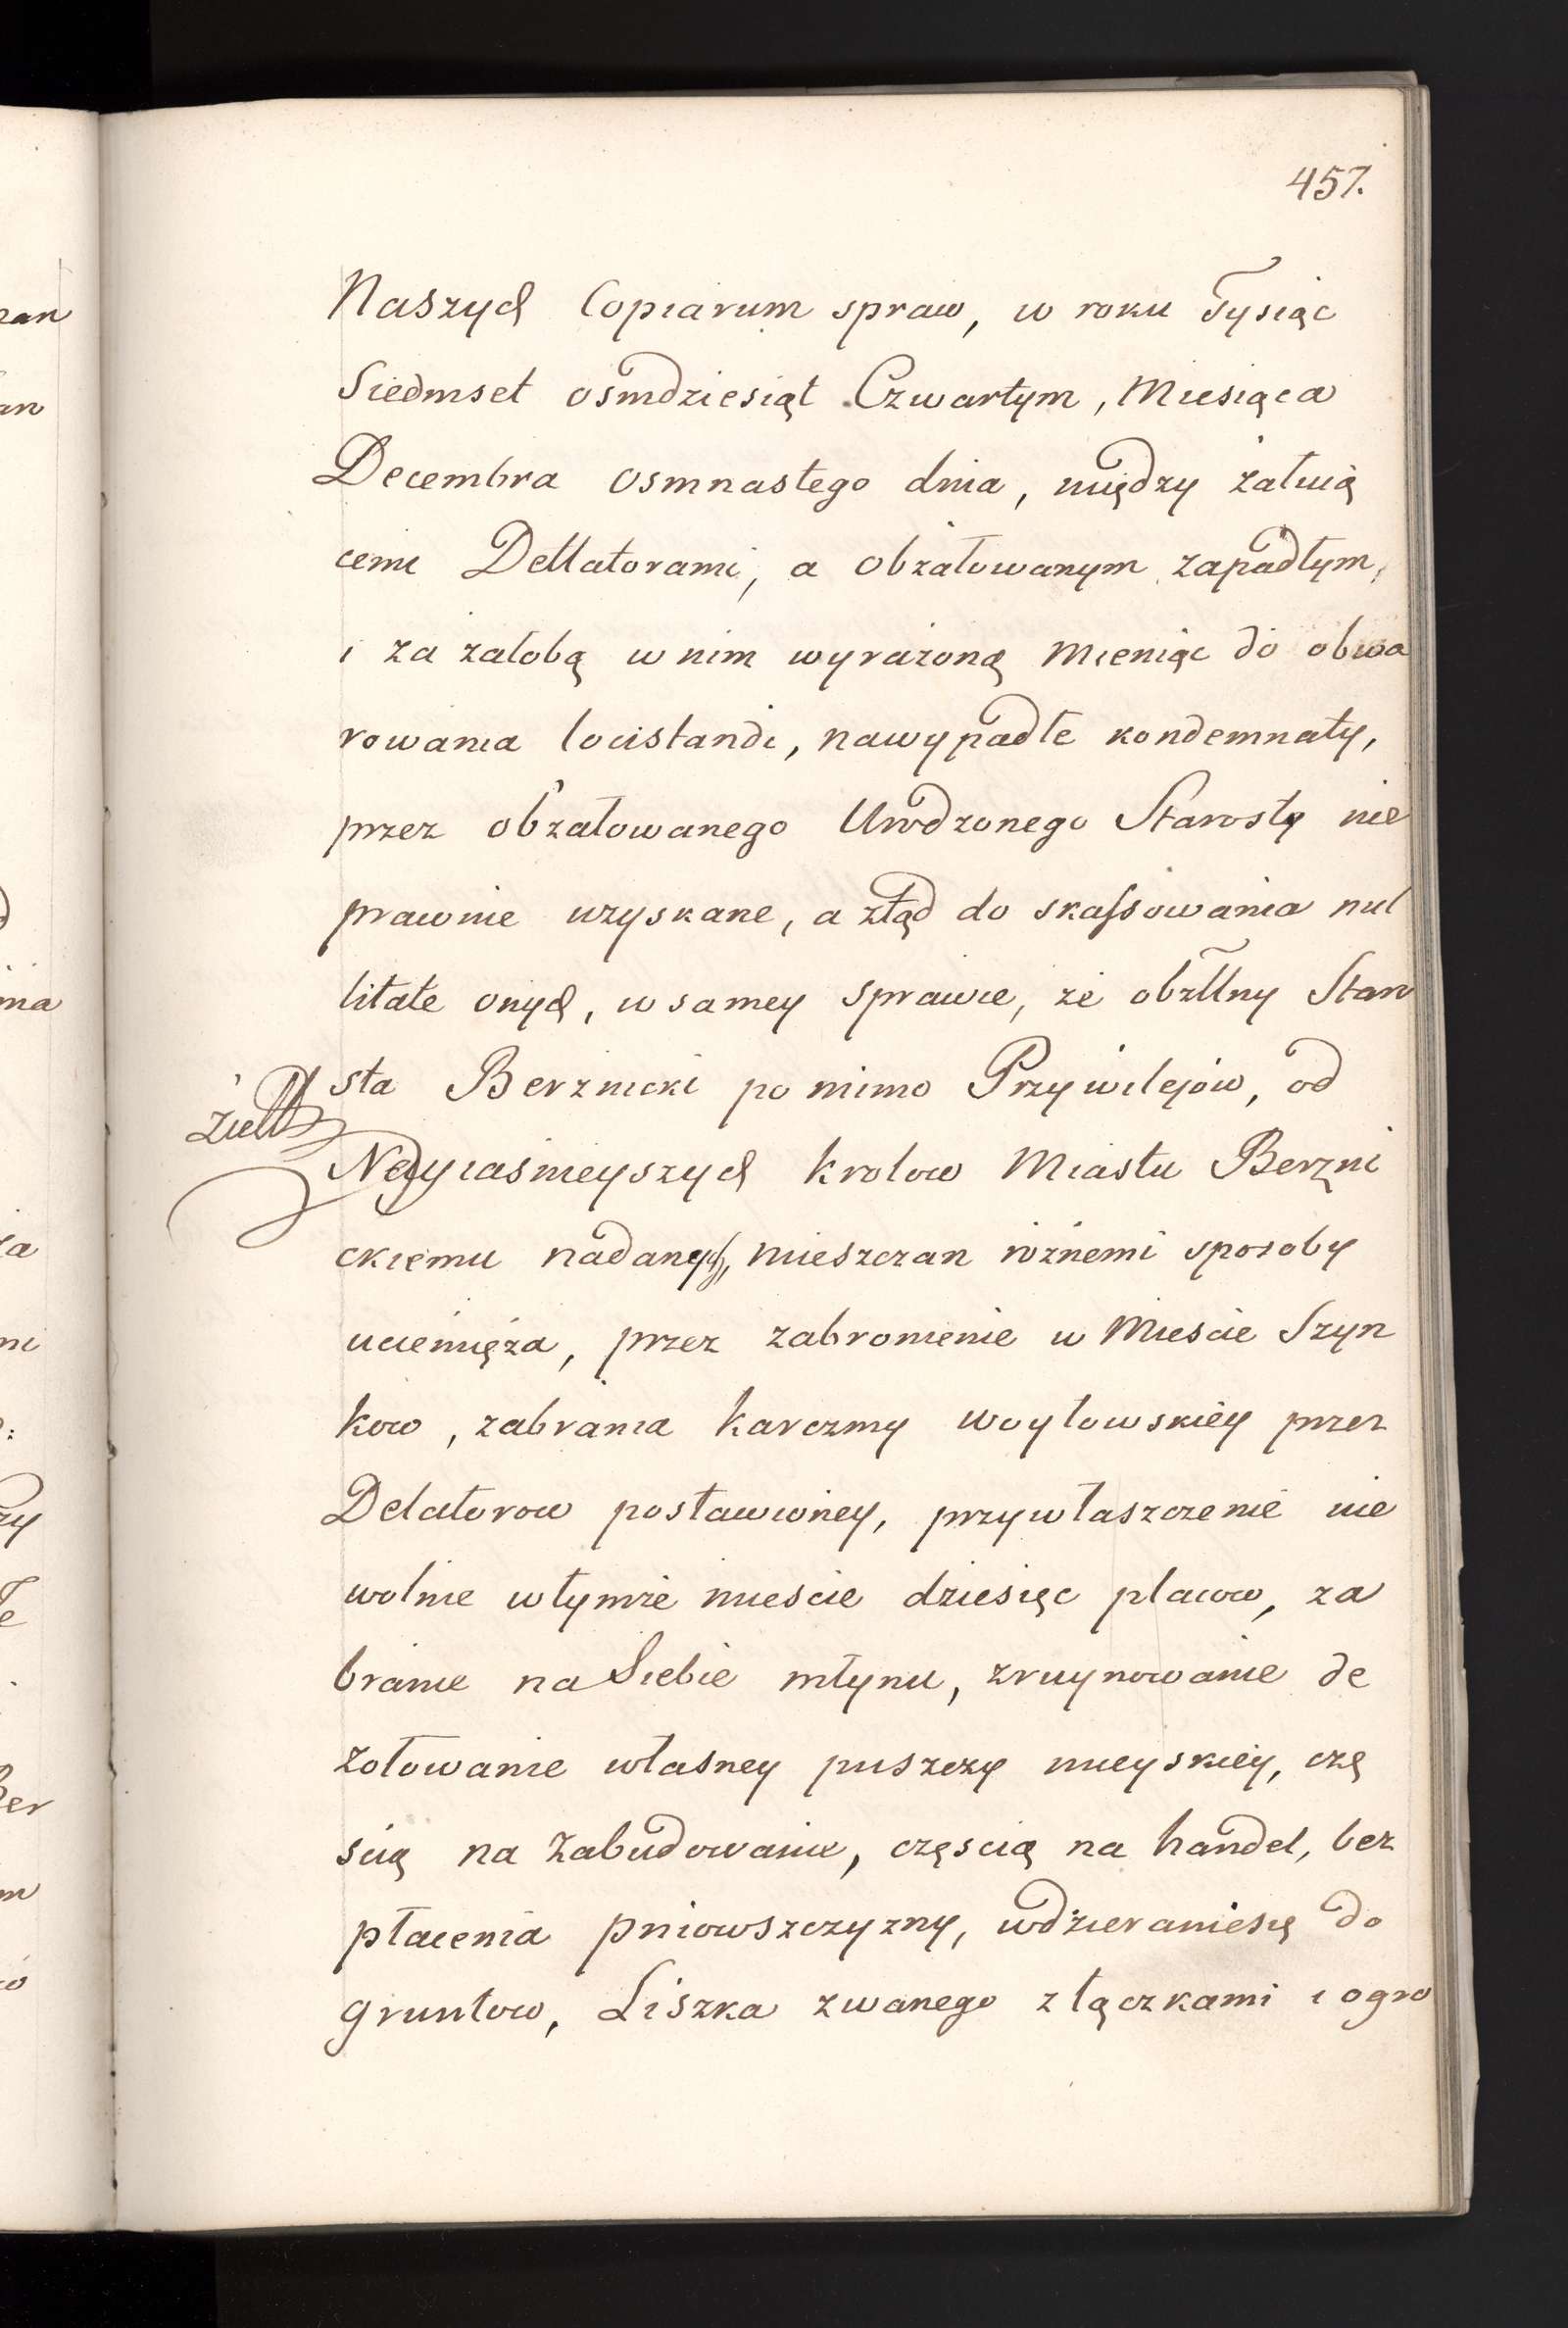 457.
Naszych Copiarum spraw, w roku Tysiąc
Siedmset osmdziesiąt Czwartym, Miesiąca
Decembra osmnastego dnia, między żałuią
cemi Dellatorami, a obżałowanym zapadłym,
i za żałobą w nim wyrażoną Mieniąc do obwa
rowania locistandi, nawypadłe kondemnaty,
przez obżałowanego Urodzonego Starostę nie
prawnie uzyskane, a ztąd do skassowania nul
litate onych, w samey sprawie, że obżłłny Staro
sta Berznicki po mimo Przywilejów, od
Nayiaśnieyszych krolow Miastu Berzni
ckiemu nadanych, mieszczan różnemi sposoby
uciemięża, przez zabronienie w Mieście Szyn
kow, zabrania karczmy woytowskiey przez
Delatorow postawioney, przywłaszczenie nie
wolnie wtymże mieście dziesięc placow, za
branie na Siebie młynu, zruynowanie de
zołowanie własney puszczy mieyskiey, czę
ścią na zabudowanie, częscią na handel, bez
płacenia pniowszczyzny, wdzieraniesię do
gruntow, Liszka zwanego z łączkami i ogro